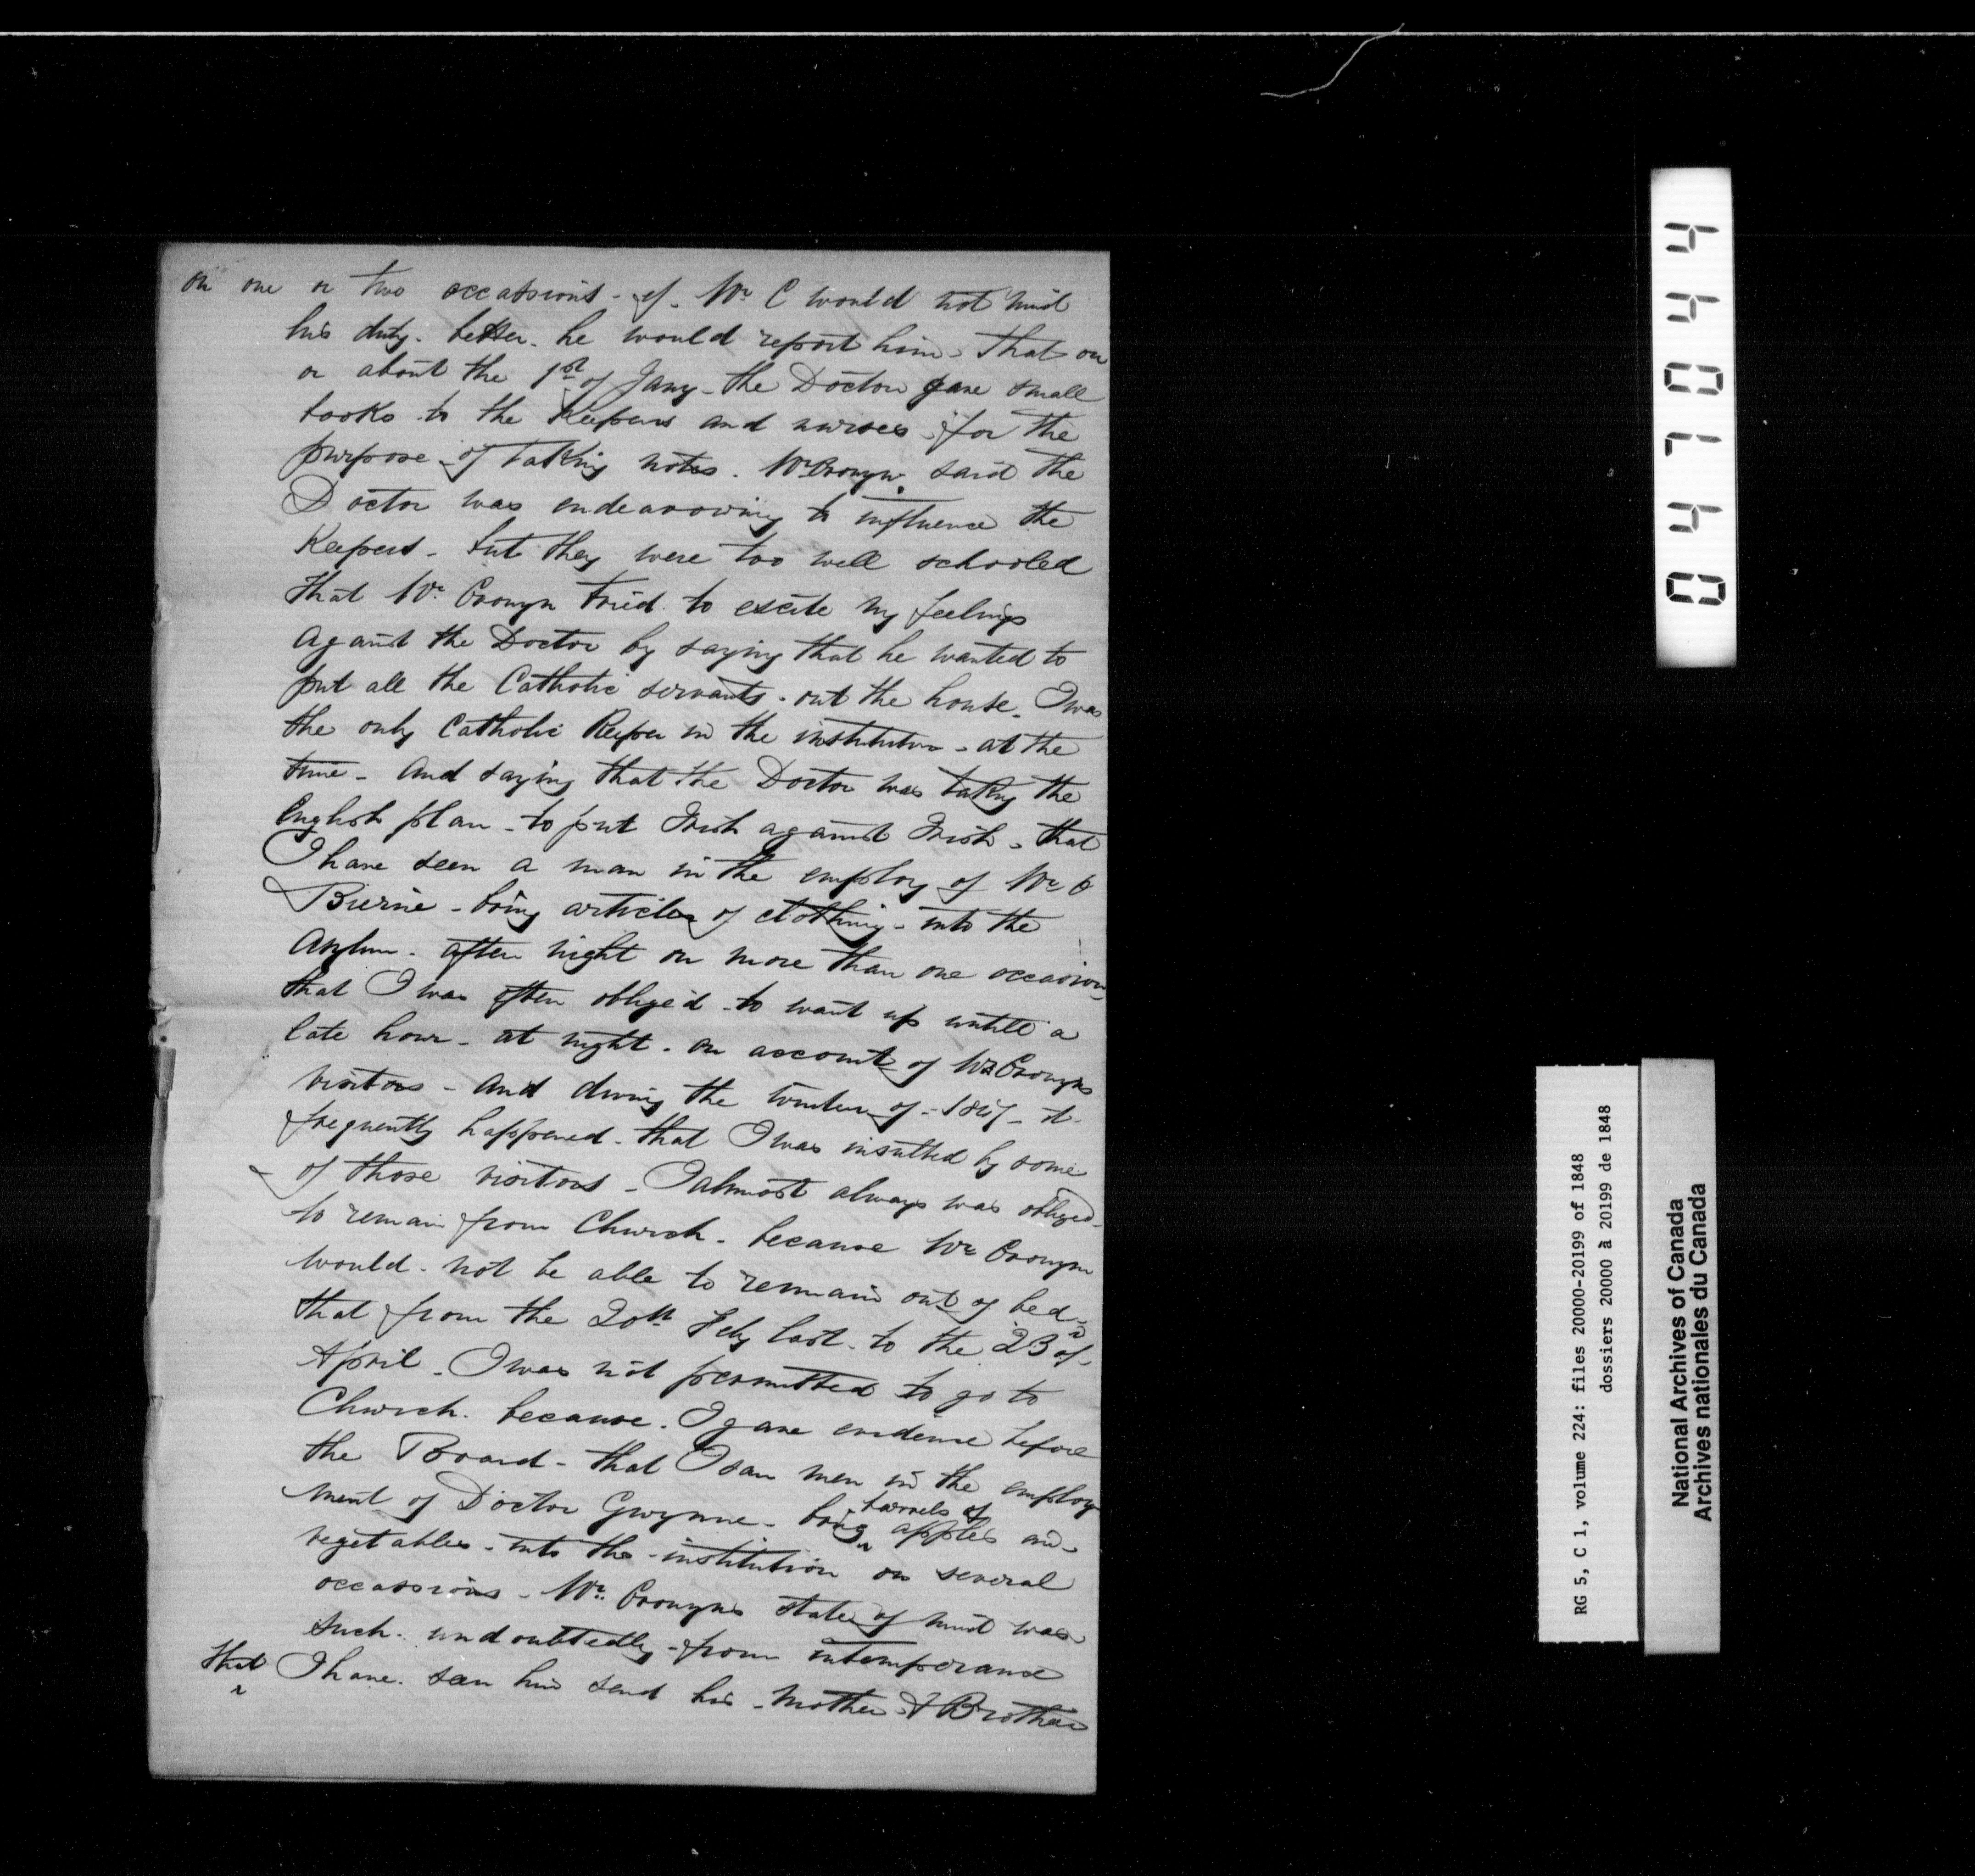 on one or two occassions - if - Mr C would not mind
his duty - better - he would report him - That on
or about the 1st of Jany - the Doctor gave small
books to the Keepers and nurses for the
purpose of taking notes. Mr Cronyn said the
Doctor was endeavowing to influence the
Keepers - but they were too well schooled
that Mr Cronyn tried to excite my feelings
against the Doctor by saying that he wanted to
put all the Catholic servants - out the house - I was
the only Catholic Keeper in the institution - at the
time - And saying that the Doctor was taking the
English plan - to put Irish against Irish - that
I have seen a man in the employ of Mr O
Beirne - bring articles of clothing - into the
Asylum - after night on more than one occasion -
that I was often oblige'd - to wait up untill a
late hour - at night - on account of Mr Cronyns
visitors - And during the winter of - 1847 - it -
frequently happened - that I was insulted by some
of those visitors - I almost always was obliged -
to remain from Church - because Mr Cronyn
would - not be able to remain out of bed -
that from the 20th Feby last - to the 23d of -
April - I was not permitted to go to
Church - because - I gave evidence before
the Board - that I saw men in the employ
ment of Doctor Gwynne - bring barrels of apples and
vegetables - into the - institution on several
occassions - Mr Cronyns state of mind was
such - undoubtedly - from intemperance
that I have - seen him send his - Mother & Brother
04704 4
RG 5, C 1, volume 224: files 20000-20199 of 1848
dossiers 20000 à 20199 de 1848
National Archives of Canada
Archives nationales du Canada